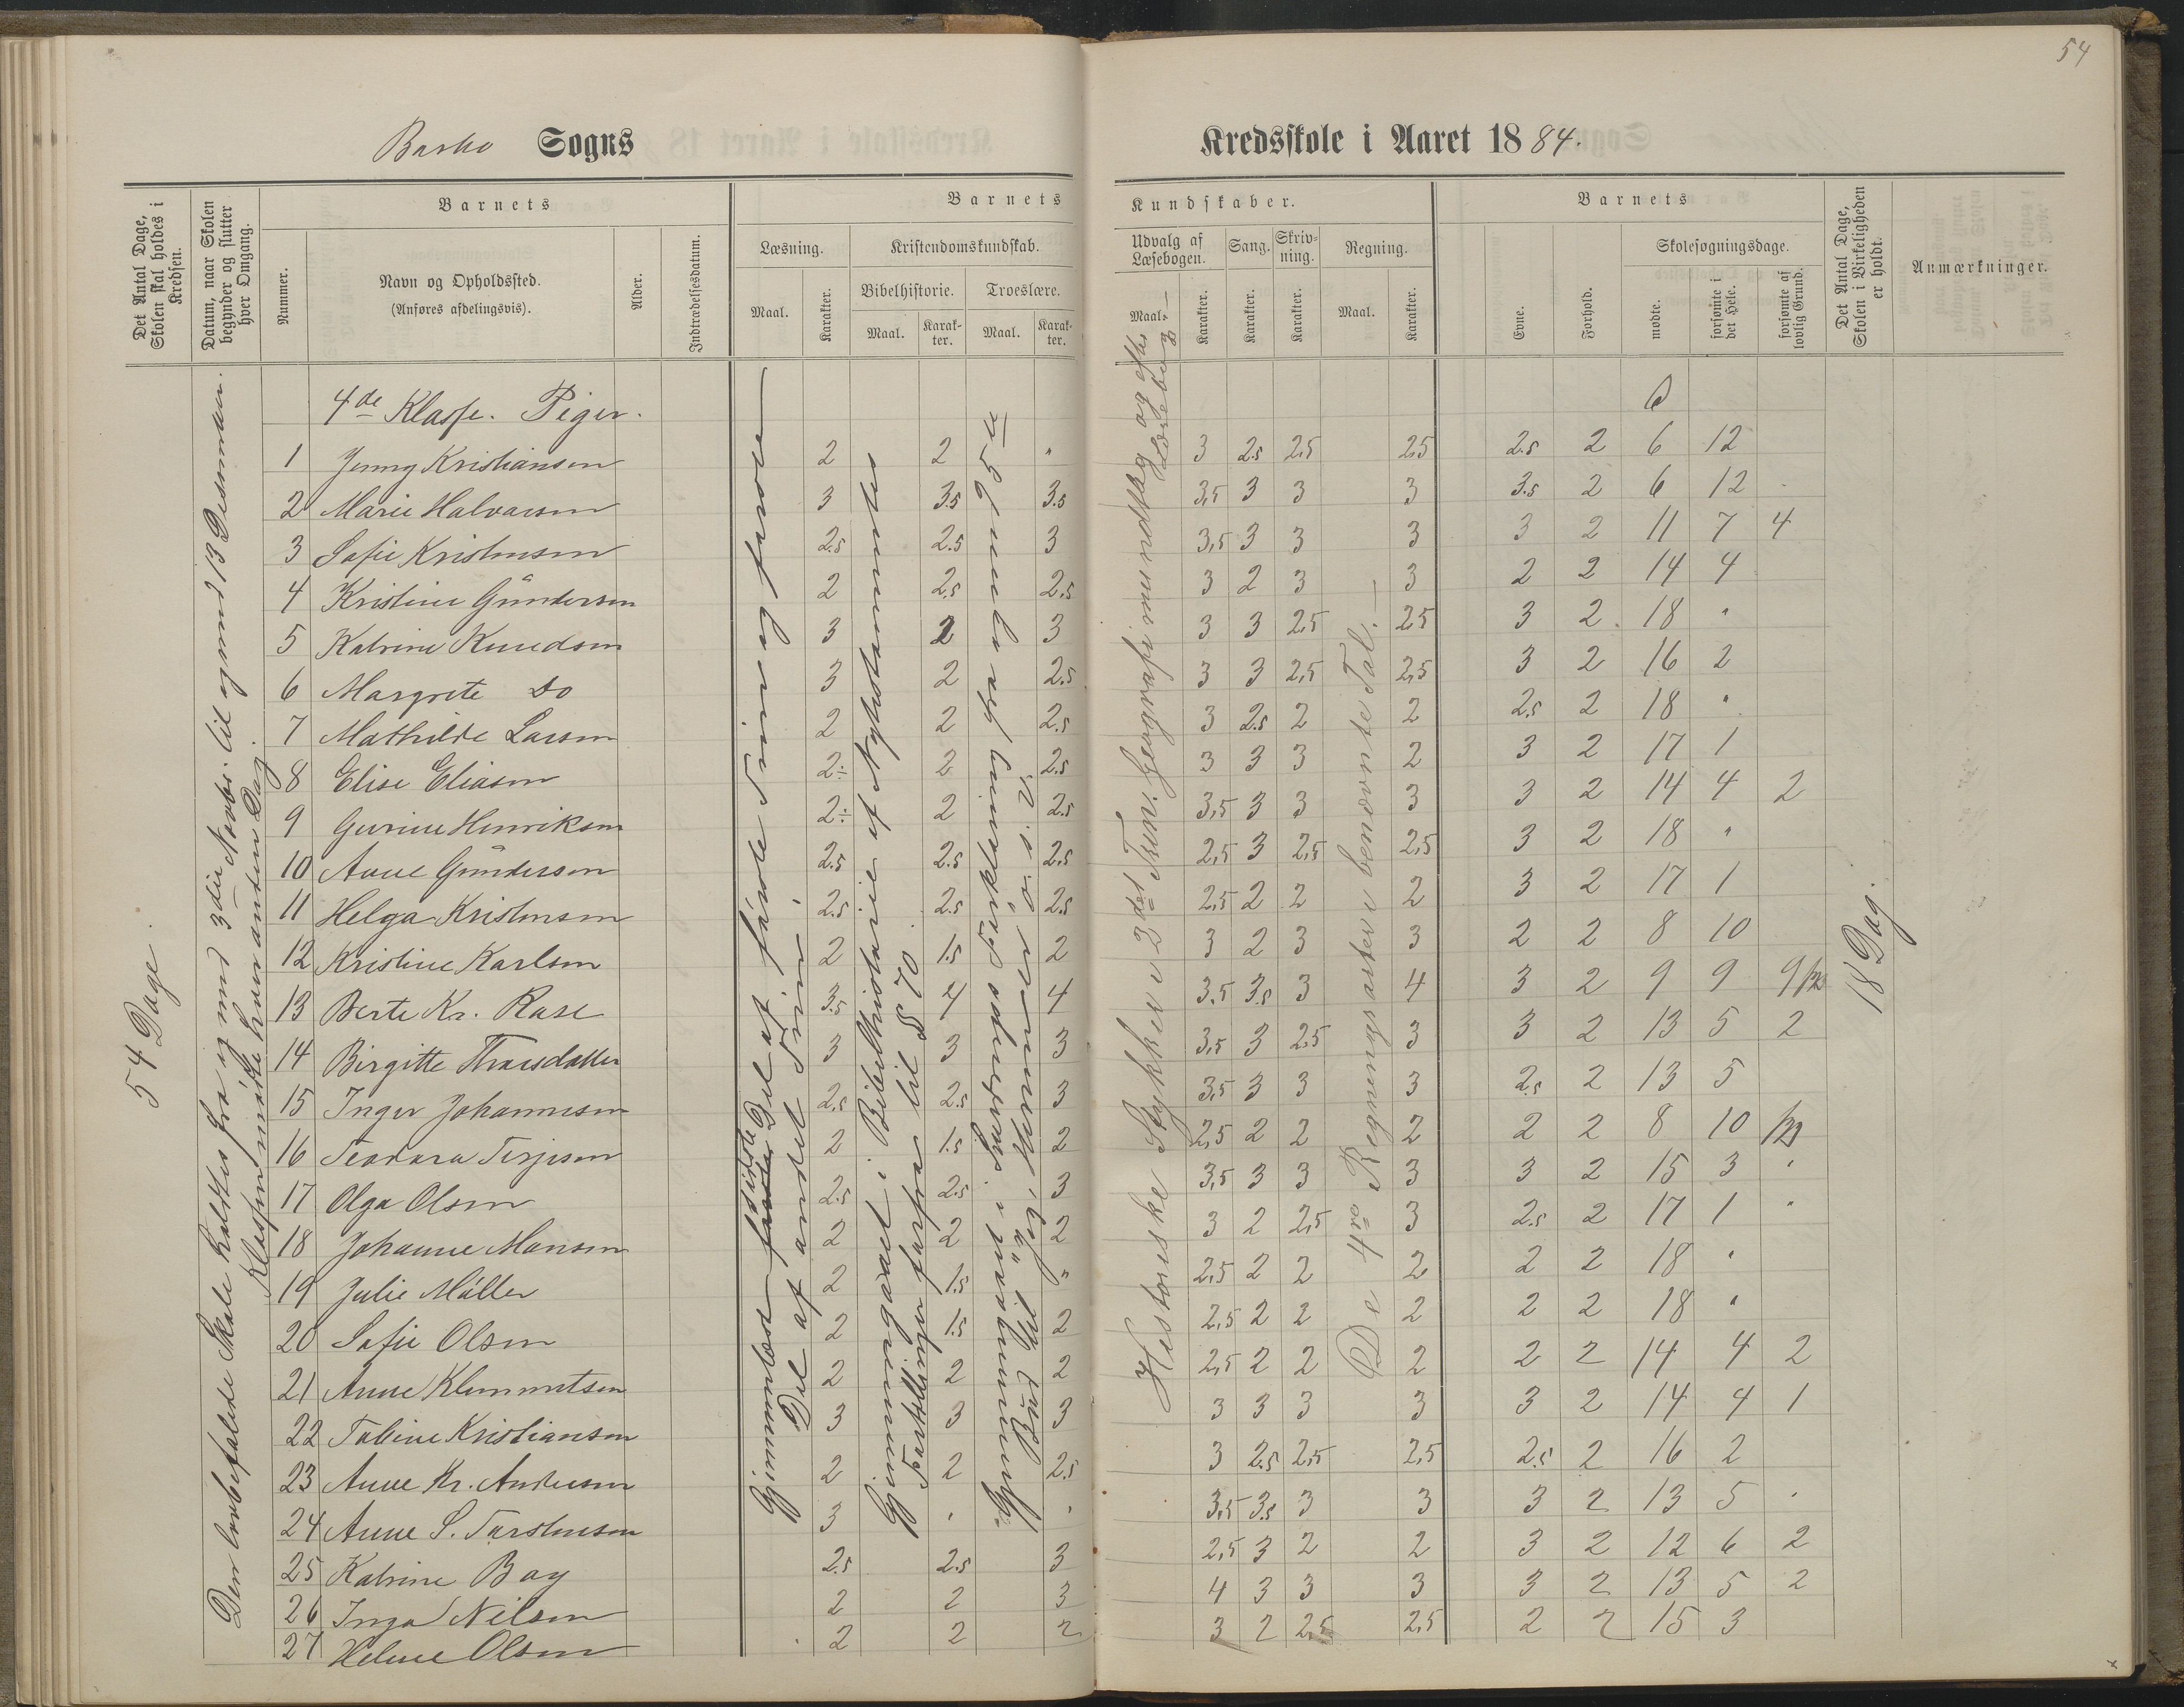 54
Barbo Sogns Kredsskole i Aaret 1884.
Det Antal Dage, Skolen skal holdes i Kredsen.
Datum, naar Skolen begynder og slutter hver Omgang.
Barnets
Nummer.
Navn og Opholdssted.
(Anføres afdelingsvis).
Alder.
Indtrædelsesdatum.
Barnets Kundskaber.
Læsning.
Maal.
Karakter.
Kristendomskundskab.
Bibelhistorie.
Maal.
Karakter.
Troeslære.
Maal.
Karakter.
Udvalg af Læsebogen.
Maal.
Karakter.
Sang.
Karakter.
Skrivning.
Karakter.
Regning.
Maal.
Karakter.
Barnets
Evne.
Forhold.
Skolesøgningsdage.
mødte.
forsømte i det Hele.
forsømte af lovlig Grund.
Det Antal Dage, Skolen i Virkeligheden er holdt.
Anmærkninger.
54 Dage.
Den lovbefalede Skole holdtes fra og med 3die Novbr. til og med 13 Desember.
Klassen mødte hver anden Dag.
Gjennemlæst sidste Del af første Trin og første
Del af andet Trin.
Gjennemgaaet i Bibelhistorie af Nytestamentet
Fortællinger forfra til § 70.
Historiske Stykker i 2det Trin. Geografi mundtlig og efter
Lærebog
De 4re Regningsarter i benævnte Tal.
18 Dag.
4de Klasse. Piger.
1 Jenny Kristiansen 2 2 " 3 2.5 2,5 2,5 2.5 2 6 12
2 Marie Halvorsen 3 3.5 3.5 3,5 3 3 3 3.5 2 6 12
3 Sofie Kristensen 2.5 2.5 3 3,5 3 3 3 3 2 11 7 4
4 Kristine Gundersen 2 2.5 2.5 3 2 3 3 2 2 14 4
5 Katrine Knudsen 3 2 3 3 3 2,5 2,5 3 2 18 "
6 Margrete Do 3 2 2.5 3 3 2,5 2,5 3 2 16 2
7 Mathilde Larsen 2 2 2.5 3 2.5 2 2 2.5 2 18 "
8 Elise Eliasen 2÷ 2 2.5 3 3 3 2 3 2 17 1
9 Gurine Henriksen 2÷ 2 2.5 3,5 3 3 3 3 2 14 4 2
10 Anne Gundersen 2.5 2.5 2.5 2,5 3 2,5 2,5 3 2 18 "
11 Helga Kristensen 2.5 2.5 2.5 2,5 2 2 2 3 2 17 1
12 Kristine Karlsen 2 1.5 2 3 2 3 3 2 2 8 10
13 Berte Kr. Rase 3.5 4 4 3,5 3.5 3 4 3 2 9 9 9
14 Birgitte 3 3 3 3,5 3 2,5 3 3 2 13 5 2
15 Inger Johannesen 2.5 2.5 3 3,5 3 3 3 2.5 2 13 5
16 Teodora Terjesen 2 1.5 2 2,5 2 2 2 2 2 8 10
17 Olga Olsen 2.5 2.5 3 3,5 3 3 3 3 2 15 3 "
18 Johanne Monsen 2 2 2 3 2 2,5 3 2.5 2 17 1 "
19 Julie Møller 2 1.5 " 2,5 2 2 2 2 2 18 "
20 Sofie Olsen 2 1.5 2 2,5 2 2 2 2 2 18 "
21 Anne Klemmetsen 2 2 2 2,5 2 2 2 2 2 14 4 2
22 Tobine Kristiansen 3 3 3 3 3 3 3 3 2 14 4 1
23 Anne Kr. Andersen 2 2 2.5 3 2.5 2,5 2,5 2.5 2 16 2
24 Anne S. Torstensen 3 " " 3,5 3.5 3 3 3 2 13 5 "
25 Katrine Bay 2.5 2.5 3 2,5 3 2 2 3 2 12 6 2
26 Inga Nilsen 2 2 3 4 3 3 3 3 2 13 5 2
27 Helene Olsen 2 2 2 3 2 2,5 2,5 2 2 15 3